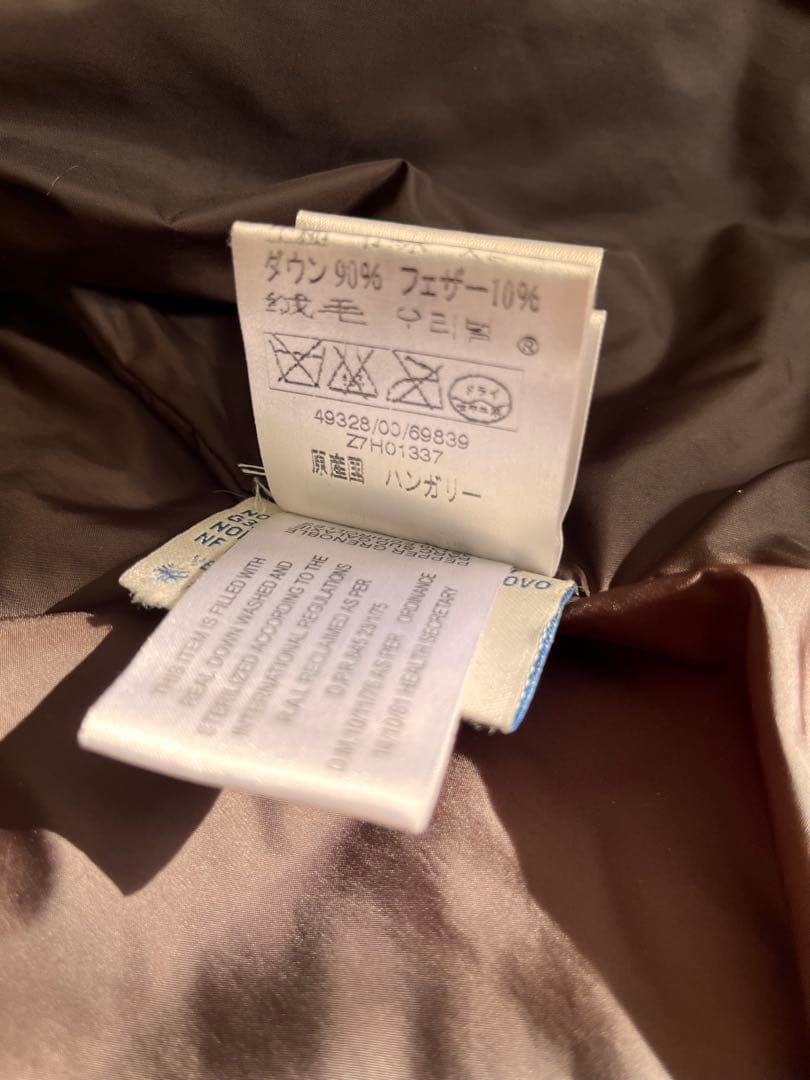 ダウン 90% フェザー10%
绒毛
®
ドライ
49328/00/69839
Z7H01337
原産国 ハンガリー
PEPPER GRENOBLE
OVO
THIS ITEM IS FILLED WITH
REAL DOWN WASHED AND
STERILIZED ACCORDING TO THE
INTERNATIONAL REGULATIONS
R.A.L RECLAIMED AS PER
D.P.R.N45 20/1/75
D.M.10/11/76 AS PER ORDINANCE
18/10/61 HEALTH SECRETARY